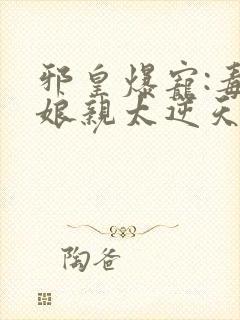 邪皇爆寵:毒
娘親太逆天
陶爸